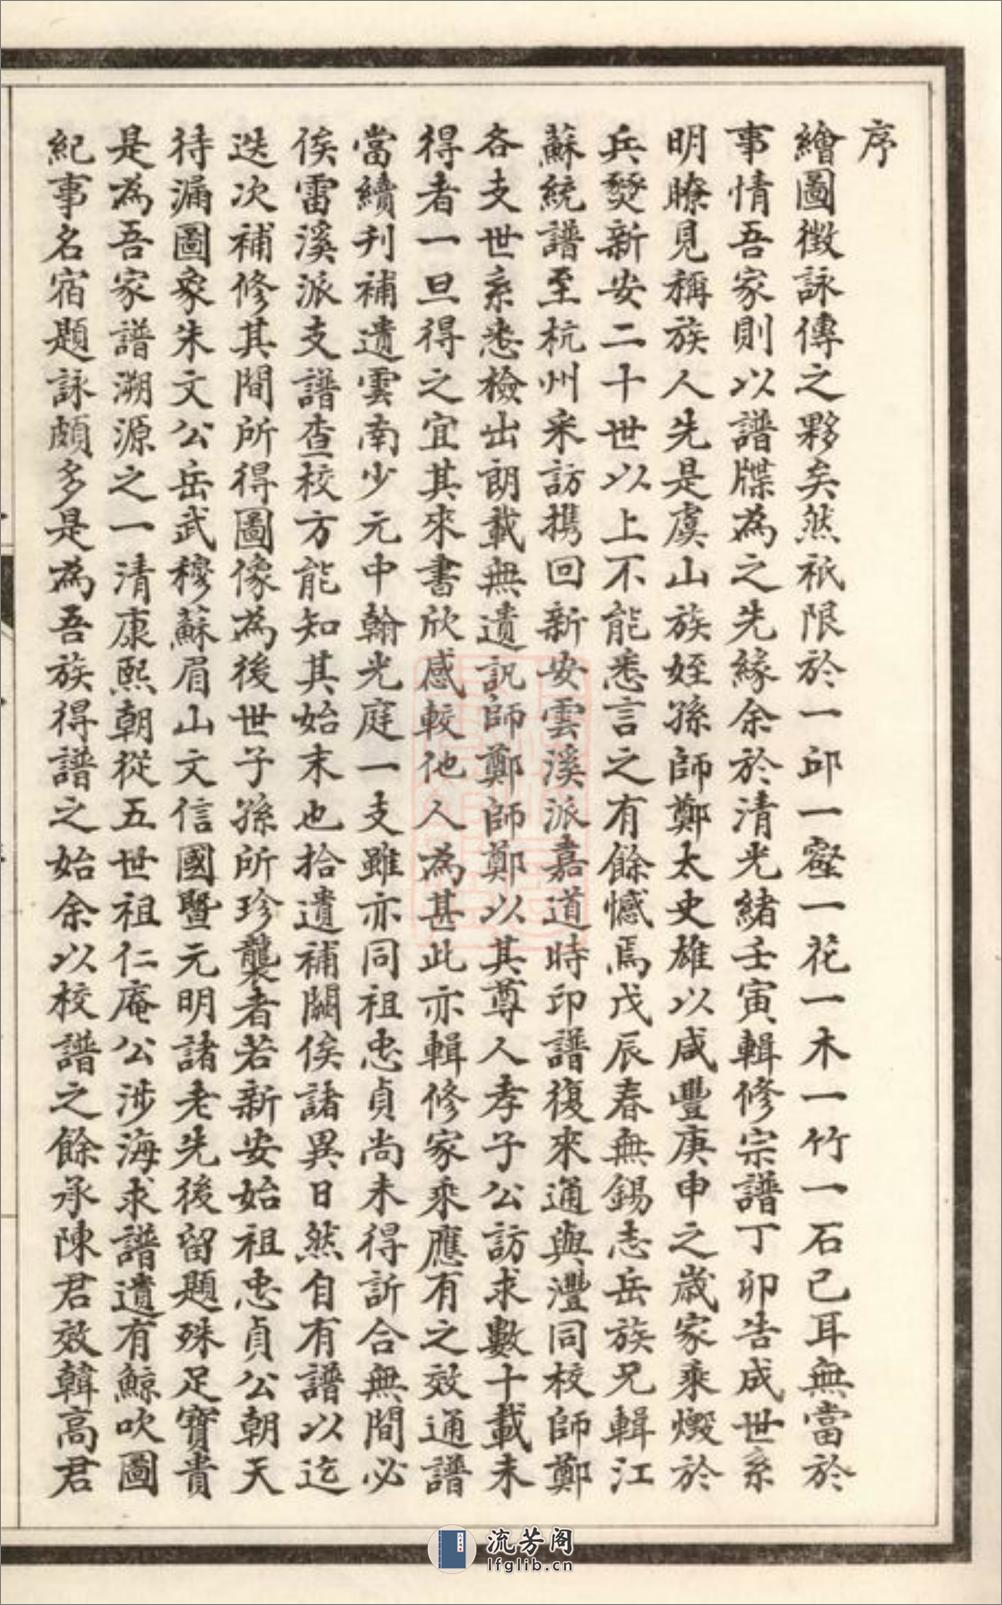 序
繪圖徵詠傳之夥矣然祇限於一邱一壑一花一木一竹一石已耳無當於
事情吾家則以譜牒為之先緣余於清光緒壬寅輯修宗譜丁卯告成世系
明瞭見稱族人先是虞山族姪孫師鄭太史雄以咸豐庚申之歲家乘燬於
兵燹新安二十世以上不能悉言之有餘憾焉戊辰春無錫志岳族兄輯江
蘇統譜至杭州采訪携回新安雲溪派嘉道時印譜復來通與灃同校師鄭
各支世系悉檢出朗載無遺訊師鄭師鄭以其尊人孝子公訪求數十載未
得者一旦得之宜其來書欣感較他人為甚此亦輯修家乘應有之效通譜
當續刋補遺雲南少元中翰光庭一支雖亦同祖忠貞尚未得訢合無間必
俟雷溪派支譜查校方能知其始末也拾遺補闕俟諸異日然自有譜以迄
迭次補修其間所得圖像為後世子孫所珍襲者若新安始祖忠貞公朝天
待漏圖象朱文公岳武穆蘇眉山文信國暨元明諸老先後留題殊足寶貴
是為吾家譜溯源之一清康熙朝從五世祖仁庵公涉海求譜遺有鯨吹圖
紀事名宿題詠頗多是為吾族得譜之始余以校譜之餘承陳君效韓高君
流芳阁
lfglib.cn